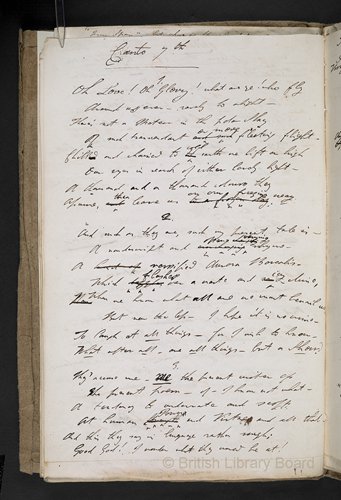 Canto 7th
Oh Love! Oh Glory! what are ye! who fly
Around us ever – rarely to alight –
There's not a Meteor in the polar Sky
Of such transcendant and more fleeting flight –
Chill and chained to cold earth we lift on high
Our eyes in search of either lovely light –
A thousand and a thousand colours they
Assume, then leave us on our freezing way
2.
And such as they are, such my present tale is –
A nondescript and ever varying rhyme –
A versified Aurora Borealis –
Which flashes o'er a waste and icy clime,
When we know what all are we must bewail us
But ne'er the less – I hope it is no crime –
To laugh at all things – for I wish to know
What after all – are all things – but a Show?
3.
They accuse me – me the present writer of
The present poem – of – I know not what –
A tendency to underrate and scoff
At human power and Virtue and all that –
And this they say in language rather rough;
Good God! I wonder what they would be at!
© British Library Board